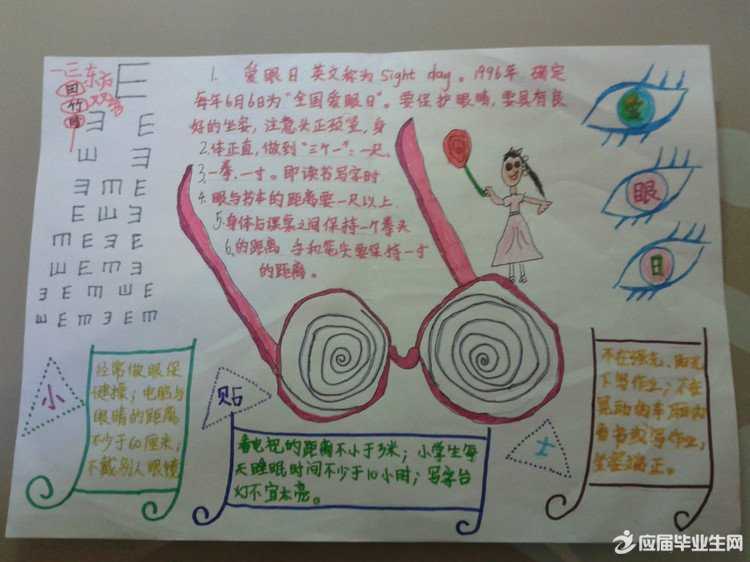 一三东方
双语
田
竹
E
ヨ E
ш ヨ
ヨ m E
E ш ヨ
m E ш E
E m ヨ m
ヨ E m ш E
ш E m ヨ E m
1. 爱眼日 英文称为 sight day。1996年 确定
每年6月6日为“全国爱眼日”。要保护眼睛,要具有良
好的坐姿,注意头正颈竖,身
2.体正直,做到“三个一”:一尺、
3.一拳、一寸。即读书写字时
4.眼与书本的距离要一尺以上
5.身体与课桌之间保持一个拳头
6.的距离 手和笔尖要保持一寸
的距离。
爱
眼
日
小
经常做眼保
健操;电脑与
眼睛的距离
不少于60厘米;
不戴别人眼镜
贴
看电视的距离不小于3米;小学生每
天睡眠时间不少于10小时;写字台
灯不宜太亮。
士
不在强光、阳光
下写作业;不在
晃动的车厢内
看书或写作业;
坐姿端正。
应届毕业生网